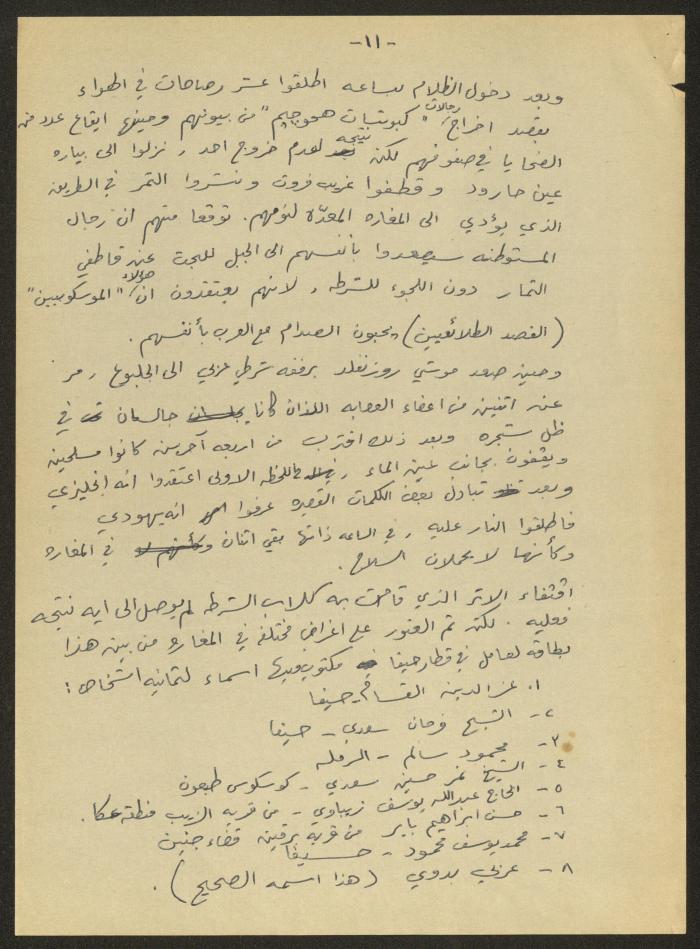 -١١-
وبعد دخول الظلام بساعه اطلقوا عشر رصاصات في الهواء
بقصد اخراج رجالات "كيبوتسات هموجيم" من بيوتهم وحينها ايقاع عدد من
الضحايا في صفوفهم لكن نتيجه لعدم خروج احد ، نزلوا الى بياره
عين حارود وقطفوا غريب فروت ونشروا الثمر في الطريق
الذي يؤدي الى المغاره المعدّه لنومهم. توقعا منهم ان رجال
المستوطنه سيصعدوا بأنفسهم الى الجبل للبحث عن قاطفي
الثمار دون اللجوء للشرطه ، لانهم يعتقدون ان هؤلاء "الموسكوبيين"
(القصد الطلائعيين) يحبون الصدام مع العرب بأنفسهم .
وحين صعد موشي روزنفلد برفقه شرطي عربي الى الجلبوع ، مر
عن اثنين من اعضاء العصابه اللذان كانا جالسان في
ظل شجره وبعد ذلك اقترب من اربعه آخرين كانوا مسلحين
ويقفون بجانب عين الماء ، باللحظه الاولى اعتقدوا انه انجليزي
وبعد تبادل بعض الكلمات القصيره عرفوا انه يهودي
فاطلقوا النار عليه ، في الساعه ذاتها بقي اثنان في المغاره
وكأنهما لا يحملان السلاح .
اقتفاء الاثر الذي قامت به كلاب الشرطه لم يوصل الى ايه نتيجه
فعليه . لكن تم العثور على اغراض مختلفه في المغاره من بين هذا
بطاقة لعامل في قطار حيفا مكتوب فيها اسماء لثمانيه اشخاص :
١. عز الدين القسام - حيفا
٢- الشيخ فرحان سعدي - حيفا
٣- محمود سالم - الرمله
٤- الشيخ نمر حسين سعدي - كوسكوس طبعون
٥- الحاج عبدالله يوسف زيباوي - من قريه الزيب منطقة عكا .
٦- حسن ابراهيم باير من قريه برقين قضاء جنين
٧- محمد يوسف محمود - حيفا
٨- عربي بدوي (هذا اسمه الصحيح) .